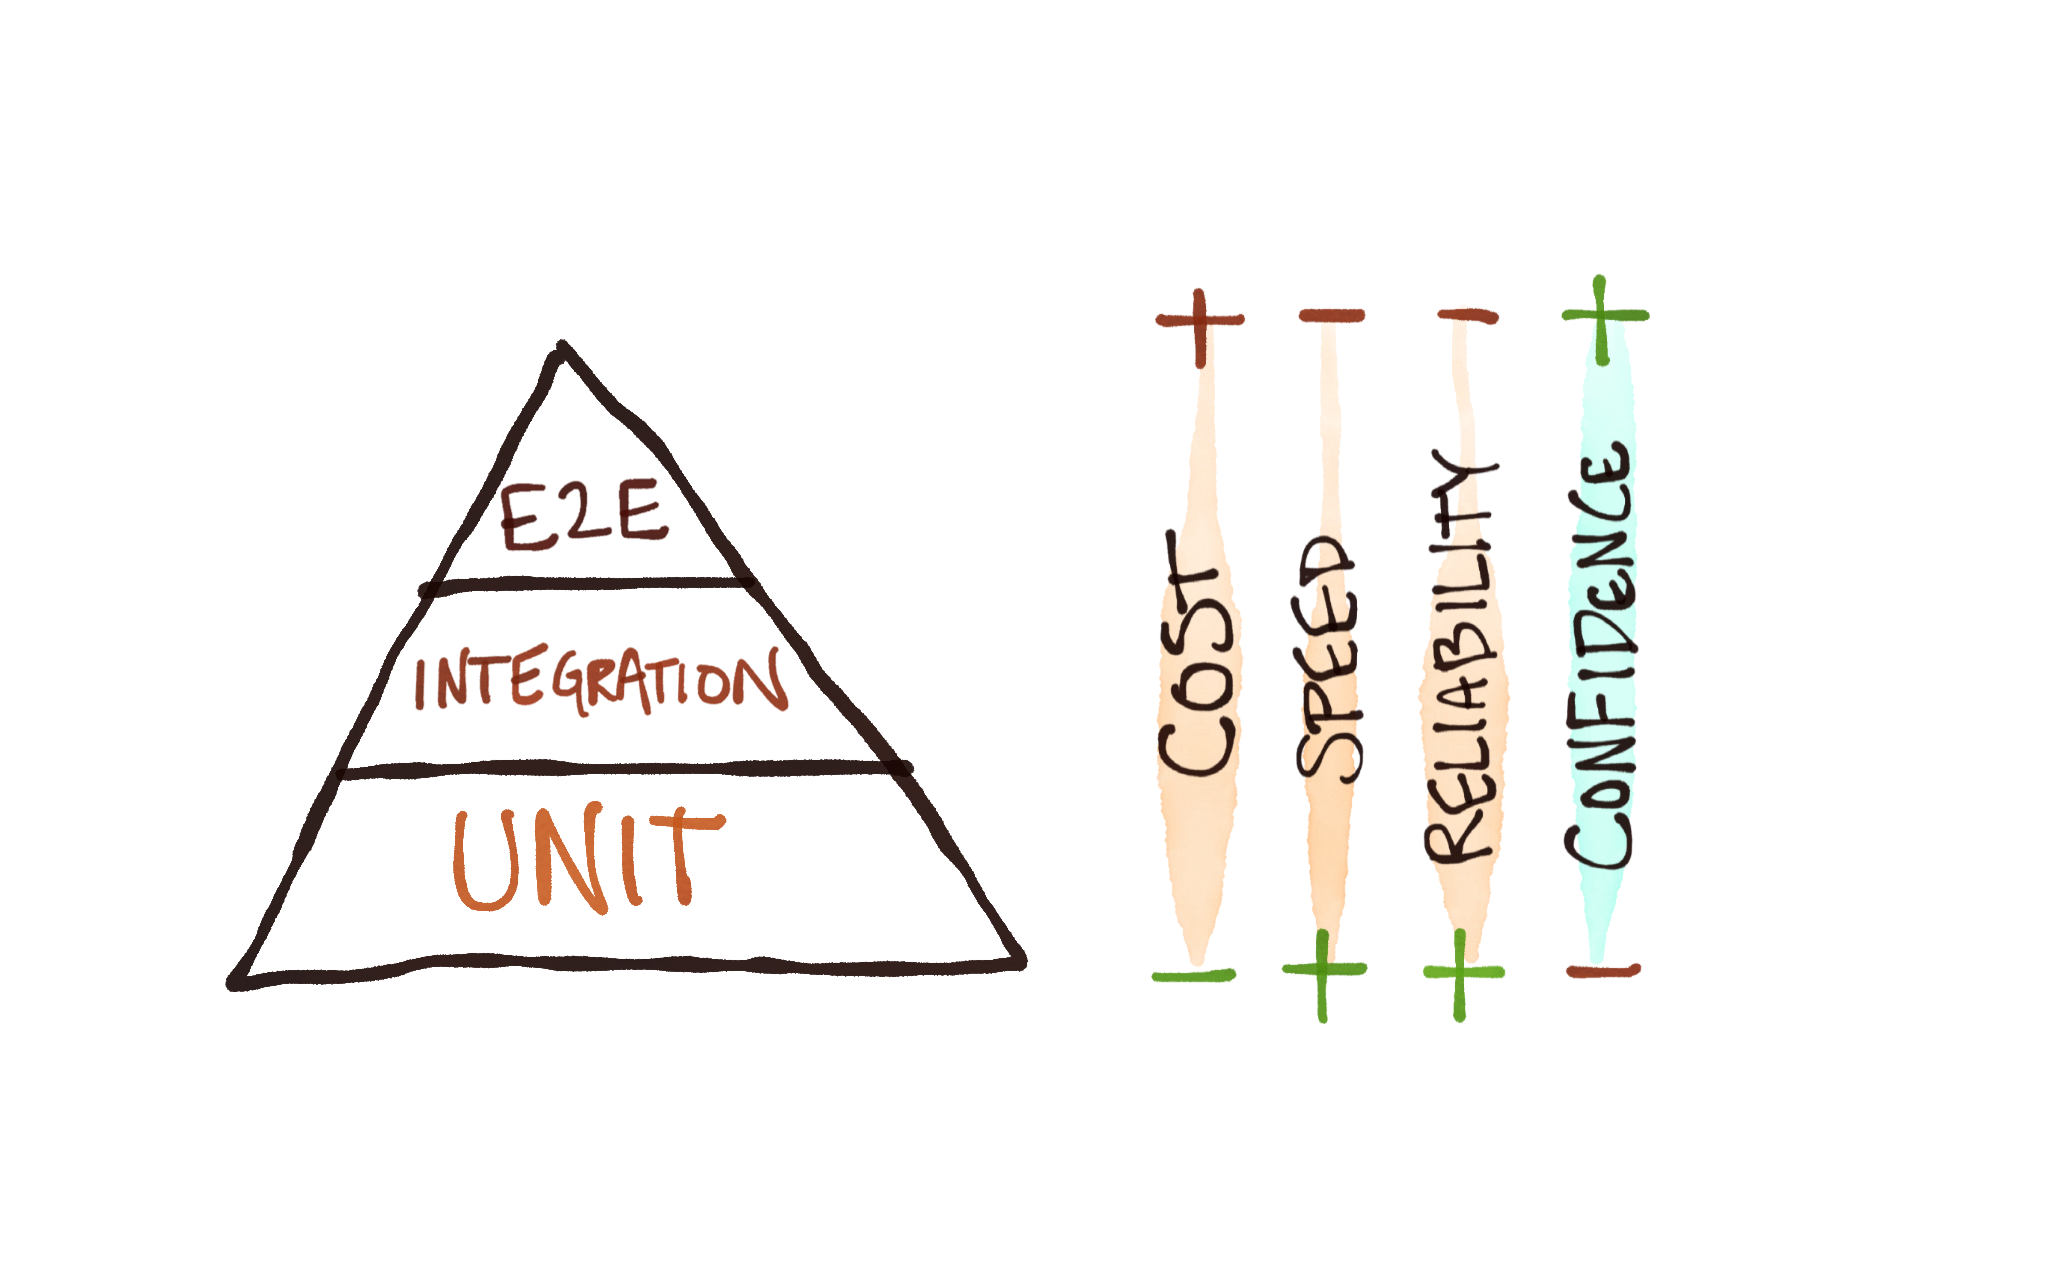 E2E
INTEGRATION
UNIT
+ - - +
COST
SPEED
RELIABILITY
CONFIDENCE
- + + -